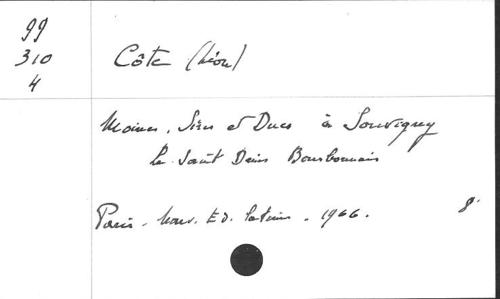 99
310
4
Côte (Léon)
Moines, Sires et Ducs à Souvigny
le Saint Denis Bourbonnais
Paris - Nouv. Ed. latines. 1966. 8°